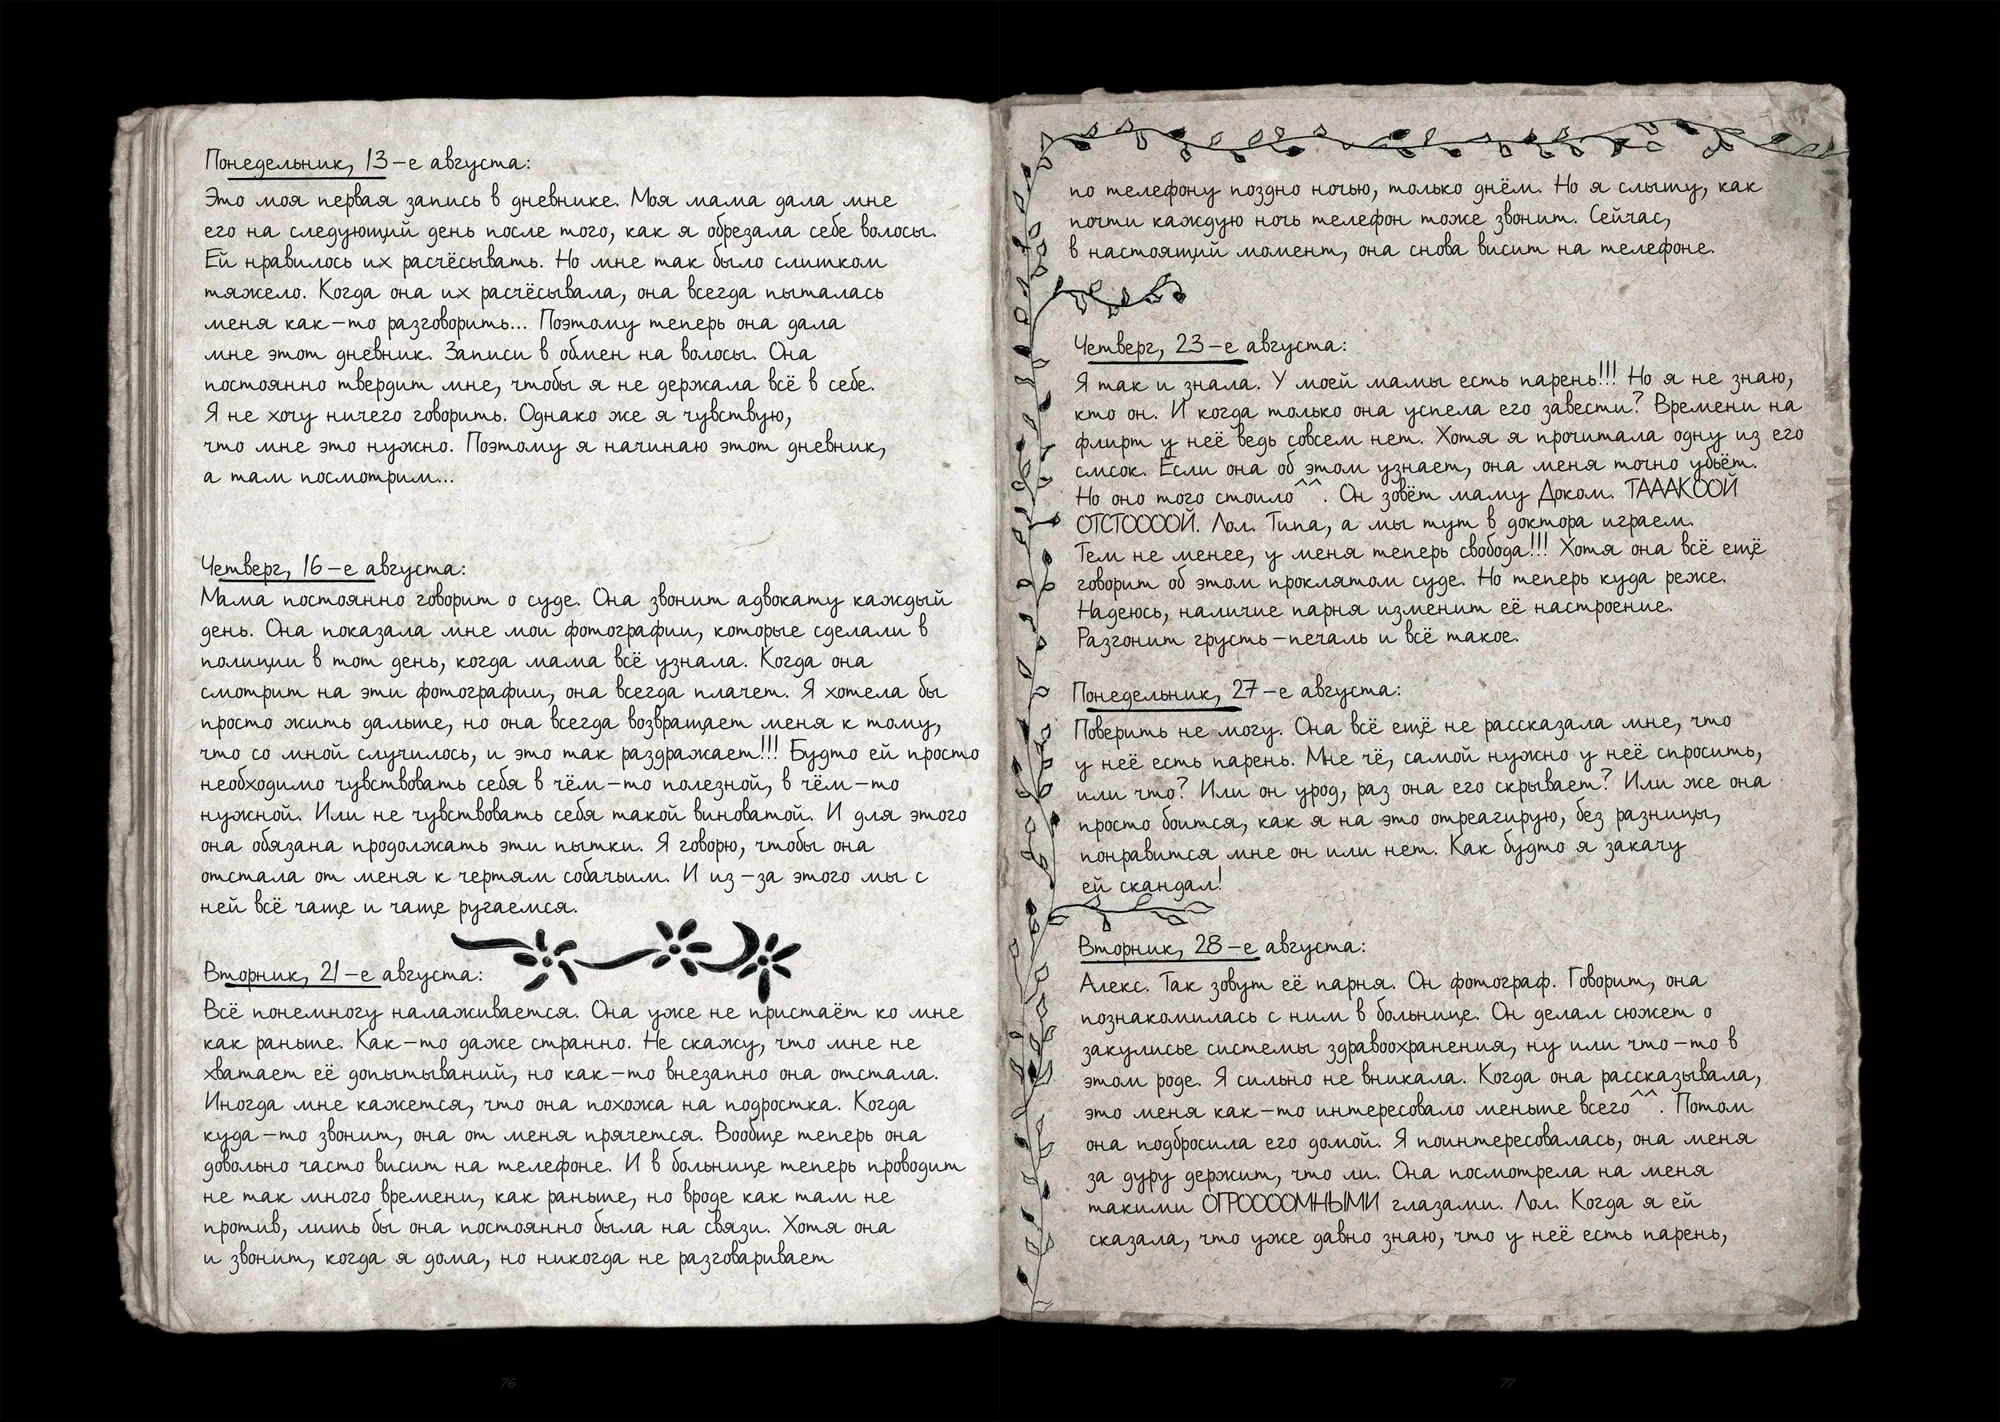 Понедельник, 13-е августа:
Это моя первая запись в дневнике. Моя мама дала мне
его на следующий день после того, как я обрезала себе волосы.
Ей нравилось их расчёсывать. Но мне так было слишком
тяжело. Когда она их расчёсывала, она всегда пыталась
меня как-то разговорить... Поэтому теперь она дала
мне этот дневник. Записи в обмен на волосы. Она
постоянно твердит мне, чтобы я не держала всё в себе.
Я не хочу ничего говорить. Однако же я чувствую,
что мне это нужно. Поэтому я начинаю этот дневник,
а там посмотрим...
Четверг, 16-е августа:
Мама постоянно говорит о суде. Она звонит адвокату каждый
день. Она показала мне мои фотографии, которые сделали в
полиции в тот день, когда мама всё узнала. Когда она
смотрит на эти фотографии, она всегда плачет. Я хотела бы
просто жить дальше, но она всегда возвращает меня к тому,
что со мной случилось, и это так раздражает!!! Будто ей просто
необходимо чувствовать себя в чём-то полезной, в чём-то
нужной. Или не чувствовать себя такой виноватой. И для этого
она обязана продолжать эти пытки. Я говорю, чтобы она
отстала от меня к чертям собачьим. И из-за этого мы с
ней всё чаще и чаще ругаемся.
Вторник, 21-е августа:
Всё понемногу налаживается. Она уже не пристаёт ко мне
как раньше. Как-то даже странно. Не скажу, что мне не
хватает её допытываний, но как-то внезапно она отстала.
Иногда мне кажется, что она похожа на подростка. Когда
куда-то звонит, она от меня прячется. Вообще теперь она
довольно часто висит на телефоне. И в больнице теперь проводит
не так много времени, как раньше, но вроде как там не
против, лишь бы она постоянно была на связи. Хотя она
и звонит, когда я дома, но никогда не разговаривает
76
по телефону поздно ночью, только днём. Но я слышу, как
почти каждую ночь телефон тоже звонит. Сейчас,
в настоящий момент, она снова висит на телефоне.
Четверг, 23-е августа:
Я так и знала. У моей мамы есть парень!!! Но я не знаю,
кто он. И когда только она успела его завести? Времени на
флирт у неё ведь совсем нет. Хотя я прочитала одну из его
смсок. Если она об этом узнает, она меня точно убьёт.
Но оно того стоило^^. Он зовёт маму Доком. ТАААКООЙ
ОТСТООООЙ. Лол. Типа, а мы тут в доктора играем.
Тем не менее, у меня теперь свобода!!! Хотя она всё ещё
говорит об этом проклятом суде. Но теперь куда реже.
Надеюсь, наличие парня изменит её настроение.
Разгонит грусть-печаль и всё такое.
Понедельник, 27-е августа:
Поверить не могу. Она всё ещё не рассказала мне, что
у неё есть парень. Мне чё, самой нужно у неё спросить,
или что? Или он урод, раз она его скрывает? Или же она
просто боится, как я на это отреагирую, без разницы,
понравится мне он или нет. Как будто я закачу
ей скандал!
Вторник, 28-е августа:
Алекс. Так зовут её парня. Он фотограф. Говорит, она
познакомилась с ним в больнице. Он делал сюжет о
закулисье системы здравоохранения, ну или что-то в
этом роде. Я сильно не вникала. Когда она рассказывала,
это меня как-то интересовало меньше всего^^. Потом
она подбросила его домой. Я поинтересовалась, она меня
за дуру держит, что ли. Она посмотрела на меня
такими ОГРООООМНЫМИ глазами. Лол. Когда я ей
сказала, что уже давно знаю, что у неё есть парень,
77